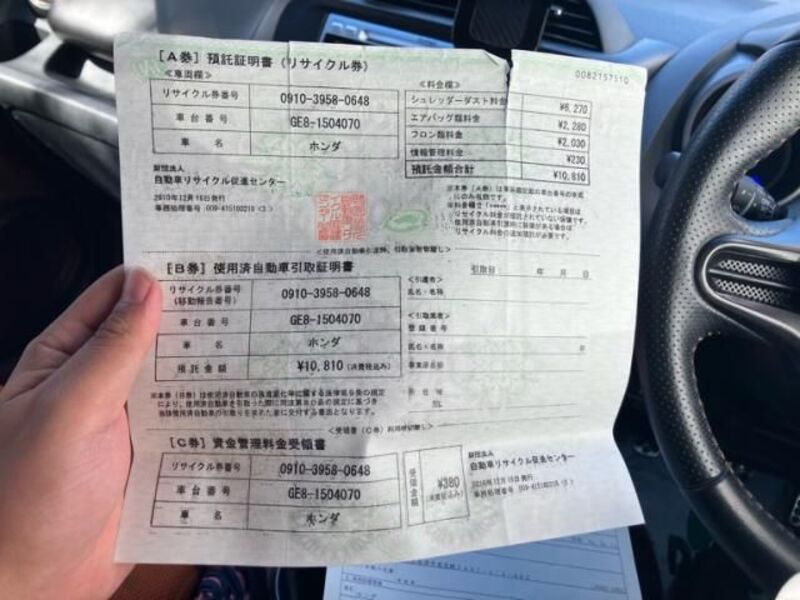 0082157510
[A券] 預託証明書 (リサイクル券)
≪車両欄≫
リサイクル券番号 0910-3958-0648
車台番号 GE8-1504070
車名 ホンダ
≪料金欄≫
シュレッダーダスト料金 ¥6,270
エアバッグ類料金 ¥2,280
フロン類料金 ¥2,030
情報管理料金 ¥230
預託金額合計 ¥10,810
財団法人
自動車リサイクル促進センター
2010年12月16日発行
[B券] 使用済自動車引取証明書
リサイクル券番号
(移動報告番号) 0910-3958-0648
車台番号 GE8-1504070
車名 ホンダ
預託金額 ¥10,810 (消費税込み)
引取日 年 月 日
≪引渡者≫
氏名・名称
≪引取業者≫
登録番号
氏名・名称
事業所名称
所在地
TEL
[C券] 資金管理料金受領書
リサイクル券番号 0910-3958-0648
車台番号 GE8-1504070
車名 ホンダ
受領金額 ¥380
(消費税込み)
財団法人
自動車リサイクル促進センター
2010年12月16日発行